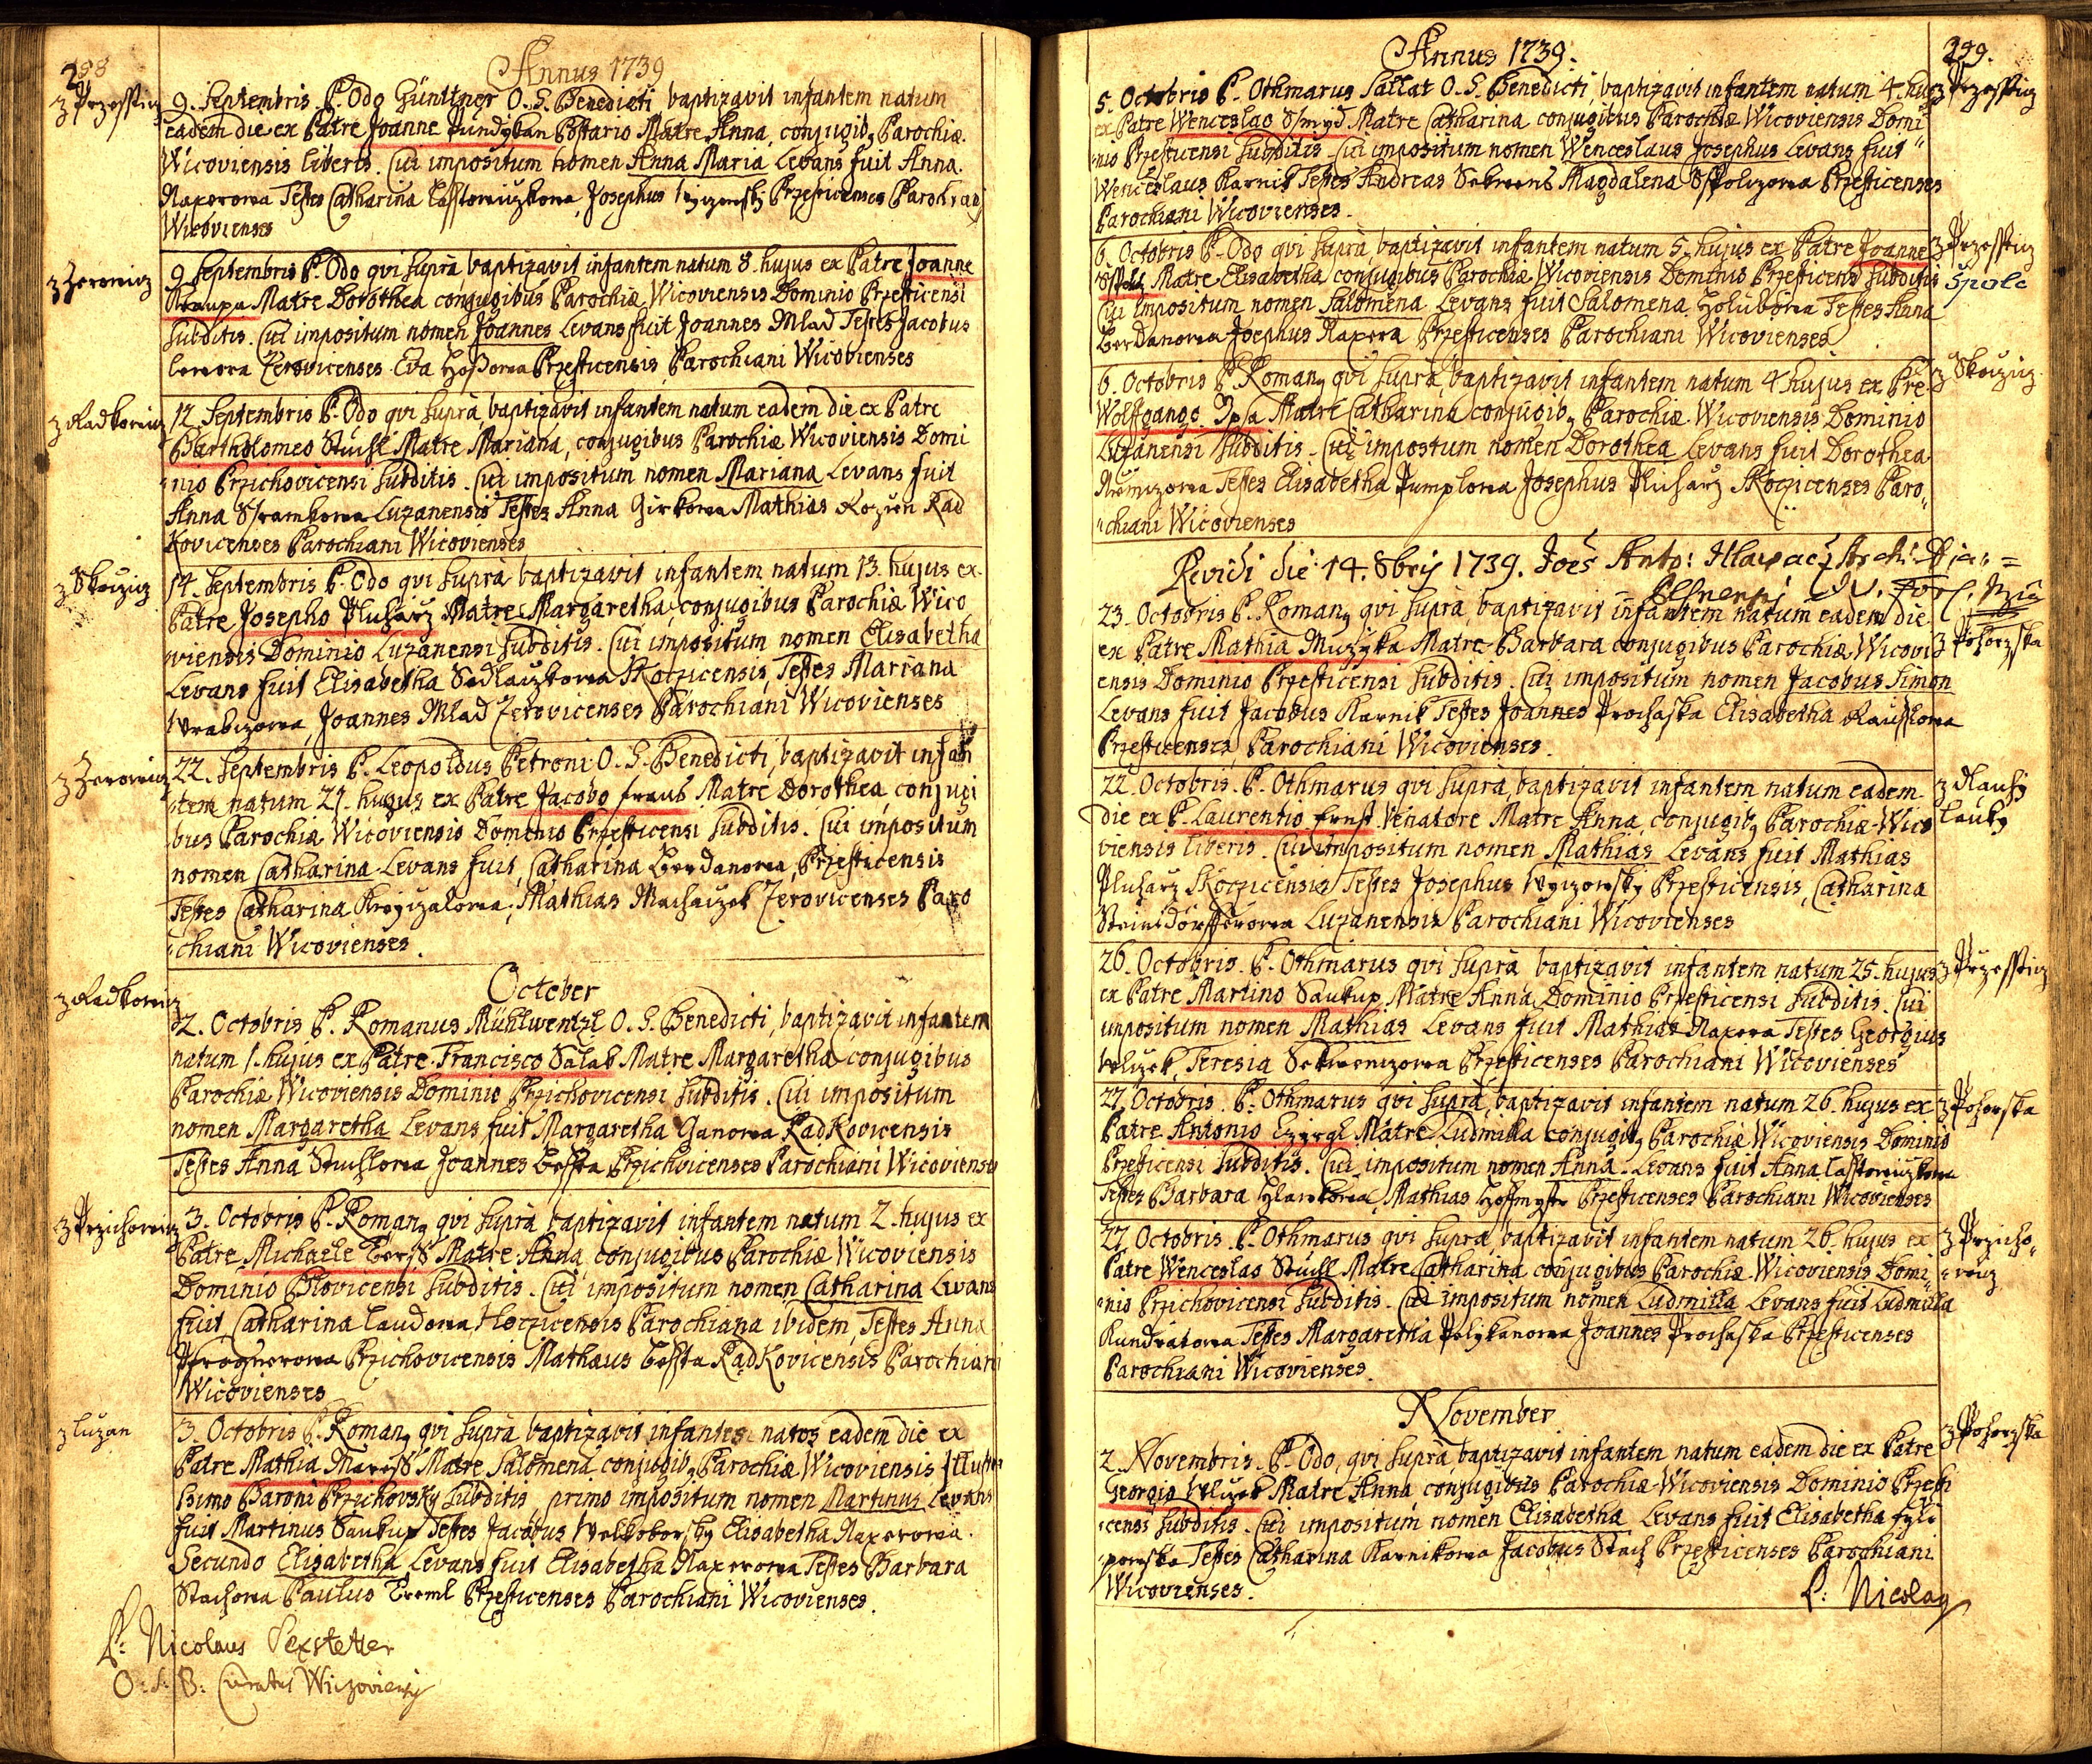 288
Annus 1739
z Przesstiz
9. Septembris P. Odo Günttner O. S. Benedicti baptizavit infantem natum
eadem die ex Patre Joanne Matre Anna, conjugib9 Parochiæ
Wicoviensis liberis. Cui impositum nomen Anna Maria Levans fuit Anna
Naxerowa Testes Catharina Josephus Przesticenses Parochiani
Wicovienses
z Zerowicz
9 Septembris P. Odo qvi supra baptizavit infantem natum 8. hujus ex Patre Joanne
Kraupa Matre Dorothea conjugibus Parochiæ Wicoviensis Dominio Przesticensi
subditis. Cui impositum nomen Joannes Levans fuit Joannes Mlad Testes Jacobus
Zerovicenses Eva Przesticensis Parochiani Wicovienses
z Radkowicz
12 Septembris P. Odo qvi supra baptizavit infantem natum eadem die ex Patre
Bartholomeo Stuchl Matre Mariana, conjugibus Parochiæ Wicoviensis Domi
nio Przichovicensi subditis. Cui impositum nomen Mariana Levans fuit
Anna Luzanensis Testes Anna Girkowa Mathias Rad
kovicenses Parochiani Wicovienses
z Skocziz
14 Septembris P. Odo qvi supra baptizavit infantem natum 13. hujus ex
Patre Josepho Plucharz Matre Margaretha, conjugibus Parochiæ Wico
viensis Dominio Luzanensi subditis. Cui impositum nomen Elisabetha
Levans fuit Elisabetha Sedlaczkowa Skoczicensis, Testes Mariana
Wrabczowa, Joannes Mlad Zerovicenses Parochiani Wicovienses
z Zerowicz
22. Septembris P. Leopoldus Petroni O. S. Benedicti, baptizavit infan
tem natum 21. hujus ex Patre Jacobo Matre Dorothea, conjugi
bus Parochiæ Wicoviensis Dominio Przesticensi subditis. Cui impositum
nomen Catharina Levans fuit, Catharina Berdanowa, Przesticensis
Testes Catharina Mathias Machaczek Zerovicenses Paro
chiani Wicovienses.
October
z Radkowicz
2. Octobris P. Romanus Mühlwentzl O. S. Benedicti, baptizavit infantem
natum 1. hujus ex Patre Francisco Salak Matre Margaretha conjugibus
Parochiæ Wicoviensis Dominio Przichovicensi subditis. Cui impositum
nomen Margaretha Levans fuit Margaretha Ganowa Radkovicensis
Testes Anna Stuchlowa Joannes Przichvicenses Parochiani Wicovienses
z Przichowicz
3. Octobris P. Roman9 qvi supra baptizavit infantem natum 2. hujus ex
Patre Michaele Matre Anna, conjugibus Parochiæ Wicoviensis
Dominio Plovicensi subditis. Cui impositum nomen Catharina Levans
fuit Catharina Laudowa Parochiana ibidem, Testes Anna
Pfrognerowa Przichovicensis Mathæus Radkovicensis Parochiani
Wicovienses
z Luzan
3. Octobris P. Roman9 qvi supra baptizavit infantes natos eadem die ex
Patre Mathia Matre Salomena, conjugib9 Parochiæ Wicoviensis Illustris
simo Baroni Przichovsky subditis, primo impositum nomen Martinus Levans
fuit Martinus Saukup Testes Jacobus Welkoborsky Elisabetha Naxerowa.
Secundo Elisabetha Levans fuit Elisabetha Naxerowa Testes Barbara
Stachowa Paulus Przesticenses Parochiani Wicovienses.
P: Nicolaus Sexstetter
O: S: B: Curatus Wiczoviensis
Annus 1739.
289.
z Przesstiz
5. Octobris P. Othmarus Sallat O. S. Benedicti, baptizavit infantem natum 4. hu9
ex Patre Wenceslao Matre Catharina conjugibus Parochiæ Wicoviensis Domi
nio Przesticensi subditis. Cui impositum nomen Wenceslaus Josephus Levans fuit
Wenceslaus Karnik Testes Andreas Magdalena Przesticenses
Parochiani Wicovienses.
z Przesstiz
Spolc
6. Octobris P. Odo qvi supra, baptizavit infantem natum 5. hujus ex Patre Joanne
Matre Elisabetha conjugibus Parochiæ Wicoviensis Dominio Przesticensi subditis
Cui impositum nomen Salomena Levans fuit Salomena Holubowa Testes Anna
Berdanowa Josephus Naxera Przesticenses Parochiani Wicovienses
z Skocziz
6. Octobris P. Roman9 qvi supra, baptizavit infantem natum 4 hujus ex Pre
Wolfgango Matre Catharina conjugib9 Parochiæ Wicoviensis Dominio
Luzanensi subditis. Cui impositum nomen Dorothea Levans fuit Dorothea
Testes Elisabetha Josephus Plucharz Skoczicenses Paro
chiani Wicovienses
Revidi die 14. 8bris 1739. Anto:
23. Octobris P. Roman9 qvi supra, baptizavit infantem natum eadem die
z Pohorzska
ex Patre Mathia Muzyka Matre Barbara conjugibus Parochiæ Wicovi
ensis Dominio Przesticensi subditis. Cui impositum nomen Jacobus Simon
Levans fuit Jacobus Karnik Testes Joannes Prochaska Elisabetha
Przesticenses Parochiani Wicovienses.
22. Octobris. P. Othmarus qvi supra, baptizavit infantem natum eadem
die ex P. Laurentio Ernst Venatore Matre Anna, conjugib9 Parochiæ Wico
viensis liberis. Cui impositum nomen Mathias Levans fuit Mathias
Plucharz Skoczicensis Testes Josephus Przesticensis, Catharina
Luzanensis Parochiani Wicovienses
z Przesstiz
26. Octobris. P. Othmarus qvi supra baptizavit infantem natum 25. hujus
ex Patre Martino Saukup, Matre Anna, Dominio Przesticensi subditis. Cui
impositum nomen Mathias Levans fuit Mathias Naxera Testes Georgius
Teresia Przesticenses Parochiani Wicovienses
z Pohorska
27. Octobris. P. Othmarus qvi supra, baptizavit infantem natum 26. hujus ex
Patre Antonio Matre Ludmilla conjugib9 Parochiæ Wicoviensis Dominio
Przesticensi subditis. Cui impositum nomen Anna. Levans fuit Anna
Testes Barbara Mathias Przesticenses Parochiani Wicovienses
z Przicho
wicz
27. Octobris. P. Othmarus qvi supra, baptizavit infantem natum 26. hujus ex
Patre Wenceslao Stuchl Matre Catharina conjugibus Parochiæ Wicoviensis Domi
nio Przichovicensi subditis. Cui impositum nomen Ludmilla Levans fuit Ludmilla
Kundratowa Testes Margaretha Joannes Prochaska Przesticenses
Parochiani Wicovienses.
November
z Pohorzska
2. Novembris. P. Odo, qvi supra, baptizavit infantem natum eadem die ex Patre
Georgio Matre Anna, conjugibus Parochiæ Wicoviensis Dominio Przesti
censi subditis. Cui impositum nomen Elisabetha Levans fuit Elisabetha
Testes Catharina Karnikowa Jacobus Stach Przesticenses Parochiani
Wicovienses.
P: Nicolaus